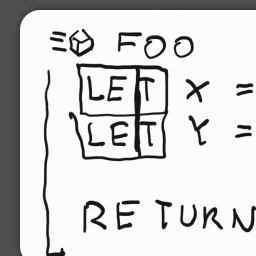 FOO
LET X =
LET Y =
RETURN